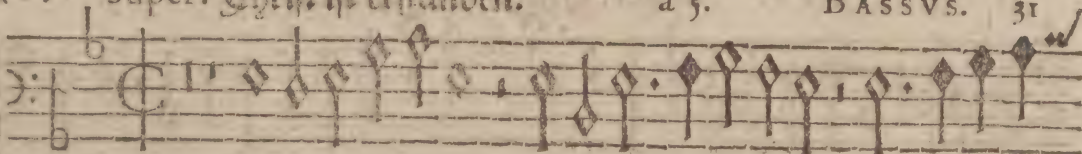 Super: Christ ist erstanden. a 5. BASSVS. 31